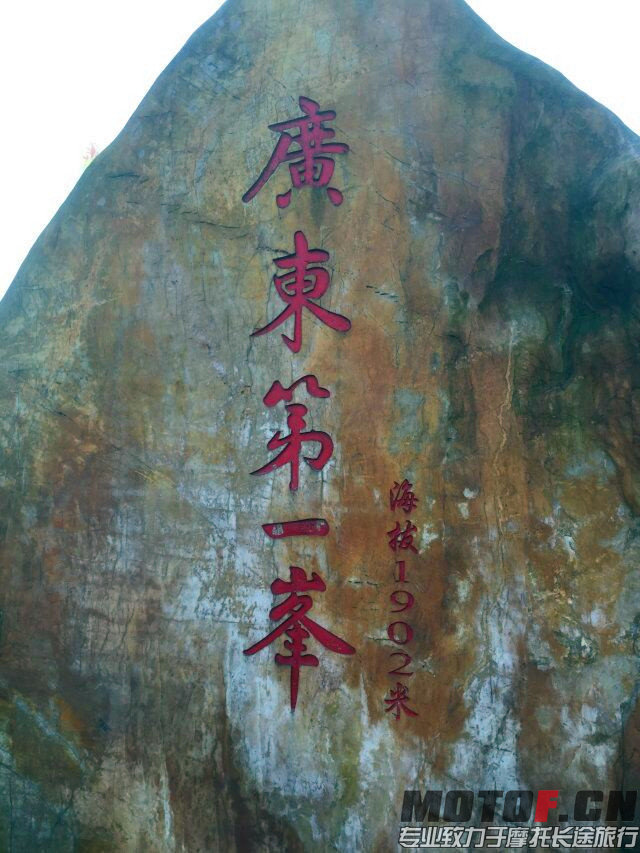 廣東第一峯
海拔1902米
MOTOF.CN
专业致力于摩托长途旅行